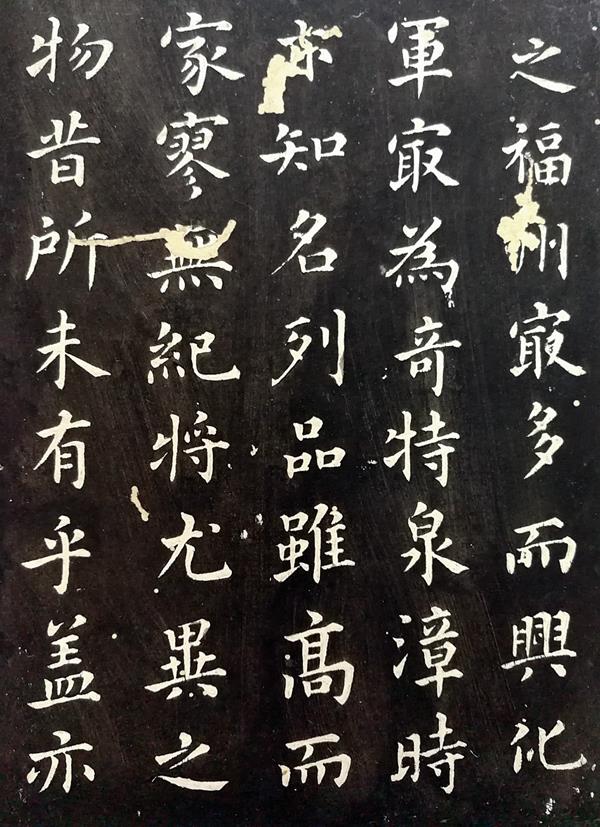 之福州㝡多而興化
軍㝡為奇特泉漳時
亦知名列品雖高而
家寥無紀將尤異之
物昔所未有乎盖亦